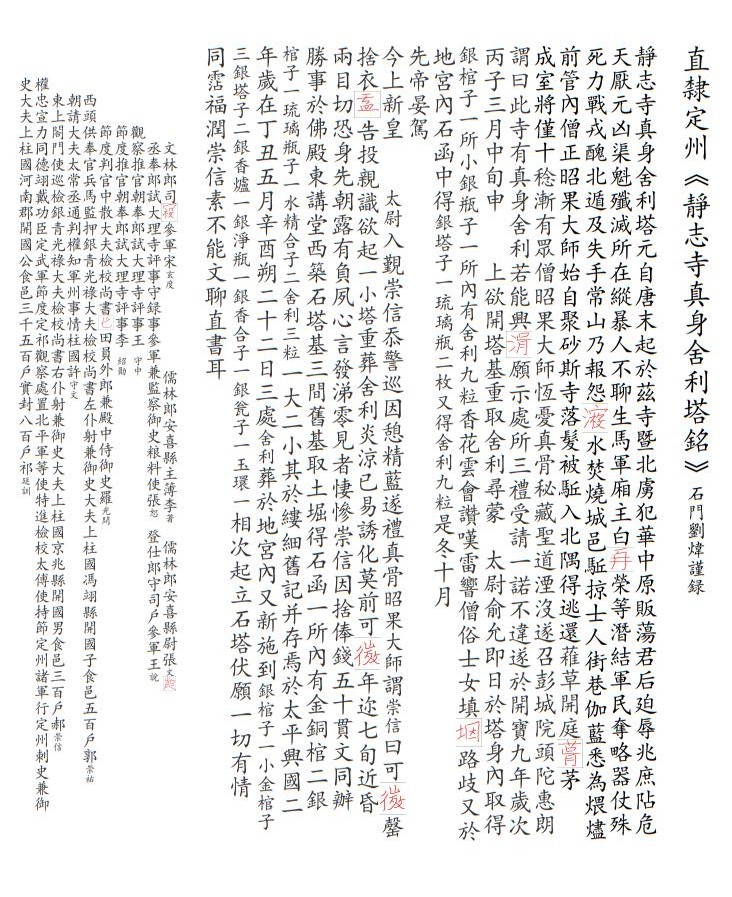 直隸定州《靜志寺真身舍利塔銘》石門劉煒謹録
靜志寺真身舍利塔元自唐末起於茲寺暨北虜犯華中原販蕩君后廹辱兆庶阽危
天厭元凶渠魁殲滅所在縱暴人不聊生馬軍廂主白榮等潛結軍民奪略器仗殊
死力戰戎醜北遁及失手常山乃報怨水焚燒城邑駈掠士人街巷伽藍悉為煨燼
前管內僧正昭果大師始自聚砂斯寺落髮被駈入北隅得逃還薙草開庭茅
成室將僅十稔漸有眾僧昭果大師恆憂真骨秘藏聖道湮沒遂召彭城院頭陀惠朗
謂曰此寺有真身舍利若能興願示處所三禮受請一諾不違遂於開寶九年歲次
丙子三月中旬申　上欲開塔基重取舍利尋蒙　太尉俞允即日於塔身內取得
銀棺子一所小銀瓶子一所內有舍利九粒香花雲會讚嘆雷響僧俗士女填路歧又於
地宮內石函中得銀塔子一琉璃瓶二枚又得舍利九粒是冬十月
先帝晏駕
今上新皇　太尉入覲崇信忝警巡因憩精藍遂禮真骨昭果大師謂崇信曰可罄
捨衣盂告投親識欲起一小塔重葬舍利炎涼已易誘化莫前可年迩七旬近昏
兩目切恐身先朝露有負夙心言發涕零見者悽慘崇信因捨俸錢五十貫文同辦
勝事於佛殿東講堂西築石塔基三間舊基取土堀得石函一所內有金銅棺二銀
棺子一琉璃瓶子一水精合子二舍利三粒一大二小其於縷細舊記并存焉於太平興國二
年歲在丁丑五月辛酉朔二十二日三處舍利葬於地宮內又新施到銀棺子一小金棺子
三銀塔子二銀香爐一銀淨瓶一銀香合子一銀瓮子一玉環一相次起立石塔伏願一切有情
同霑福潤崇信素不能文聊直書耳
文林郎司參軍宋玄度　儒林郎安喜縣主薄李著　儒林郎安喜縣尉張文
丞奉郎試大理寺評事守録事參軍兼監察御史粮料使張恕　登仕郎守司戶參軍王說
觀察推官朝奉郎試大理寺評事王守中
節度推官朝奉郎試大理寺評事李紹勛
節度判官中散大夫檢校尚書田員外郎兼殿中侍御史羅光鬧
西頭供奉官兵馬監押銀青光祿大夫檢校尚書左仆射兼御史大夫上柱國馮翊縣開國子食邑五百戶郭崇祐
朝請大夫太常丞通判權知軍州事情柱國許守文
東上閤門使巡檢銀青光祿大夫檢校尚書右仆射兼御史大夫上柱國京兆縣開國男食邑三百戶郝崇信
權忠宣力同德翊戴功臣定武軍節度定祁觀察處置北平軍等使特進檢校太傅使持節定州諸軍行定州刺史兼御
史大夫上柱國河南郡開國公食邑三千五百戶實封八百戶祁廷訓